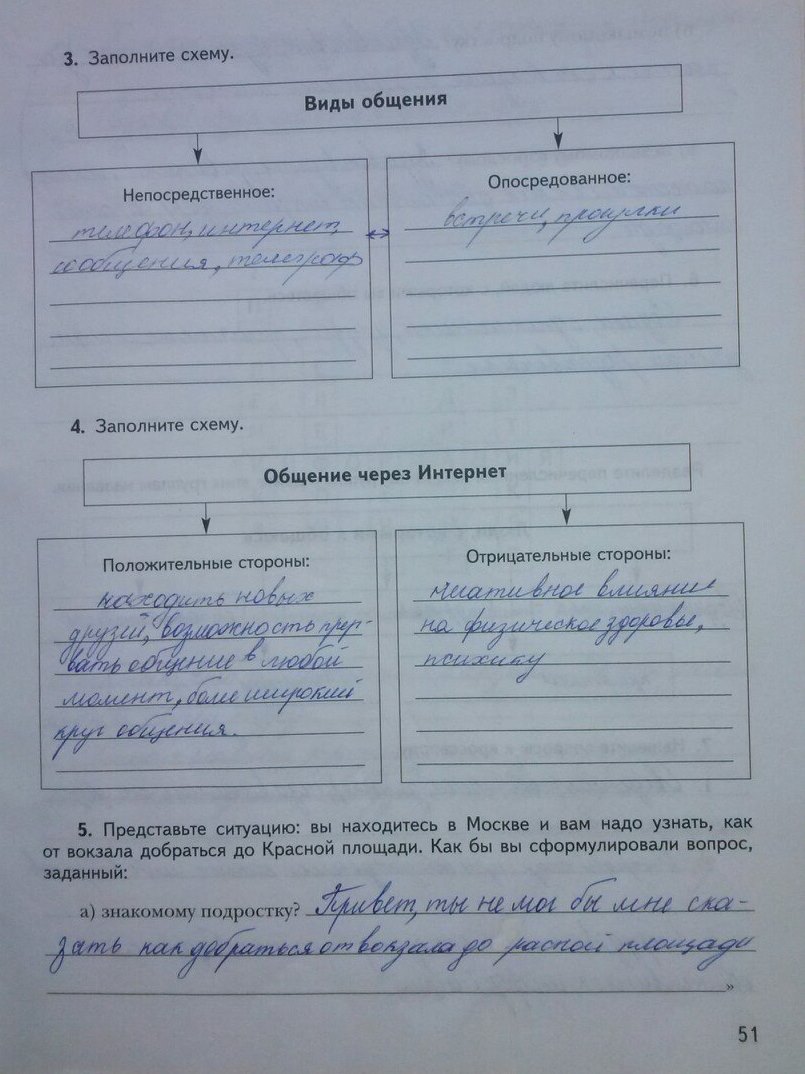 3. Заполните схему.
Виды общения
Непосредственное:
телефон, интернет,
сообщения, телеграф
Опосредованное:
встречи, прогулки
4. Заполните схему.
Общение через Интернет
Положительные стороны:
находить новых
друзей, возможность прер-
вать общение в любой
момент, более широкий
круг общения.
Отрицательные стороны:
негативное влияние
на физическое здоровье,
психику
5. Представьте ситуацию: вы находитесь в Москве и вам надо узнать, как
от вокзала добраться до Красной площади. Как бы вы сформулировали вопрос,
заданный:
а) знакомому подростку? Привет, ты не мог бы мне ска-
зать как добраться от вокзала до расной площади
»
51